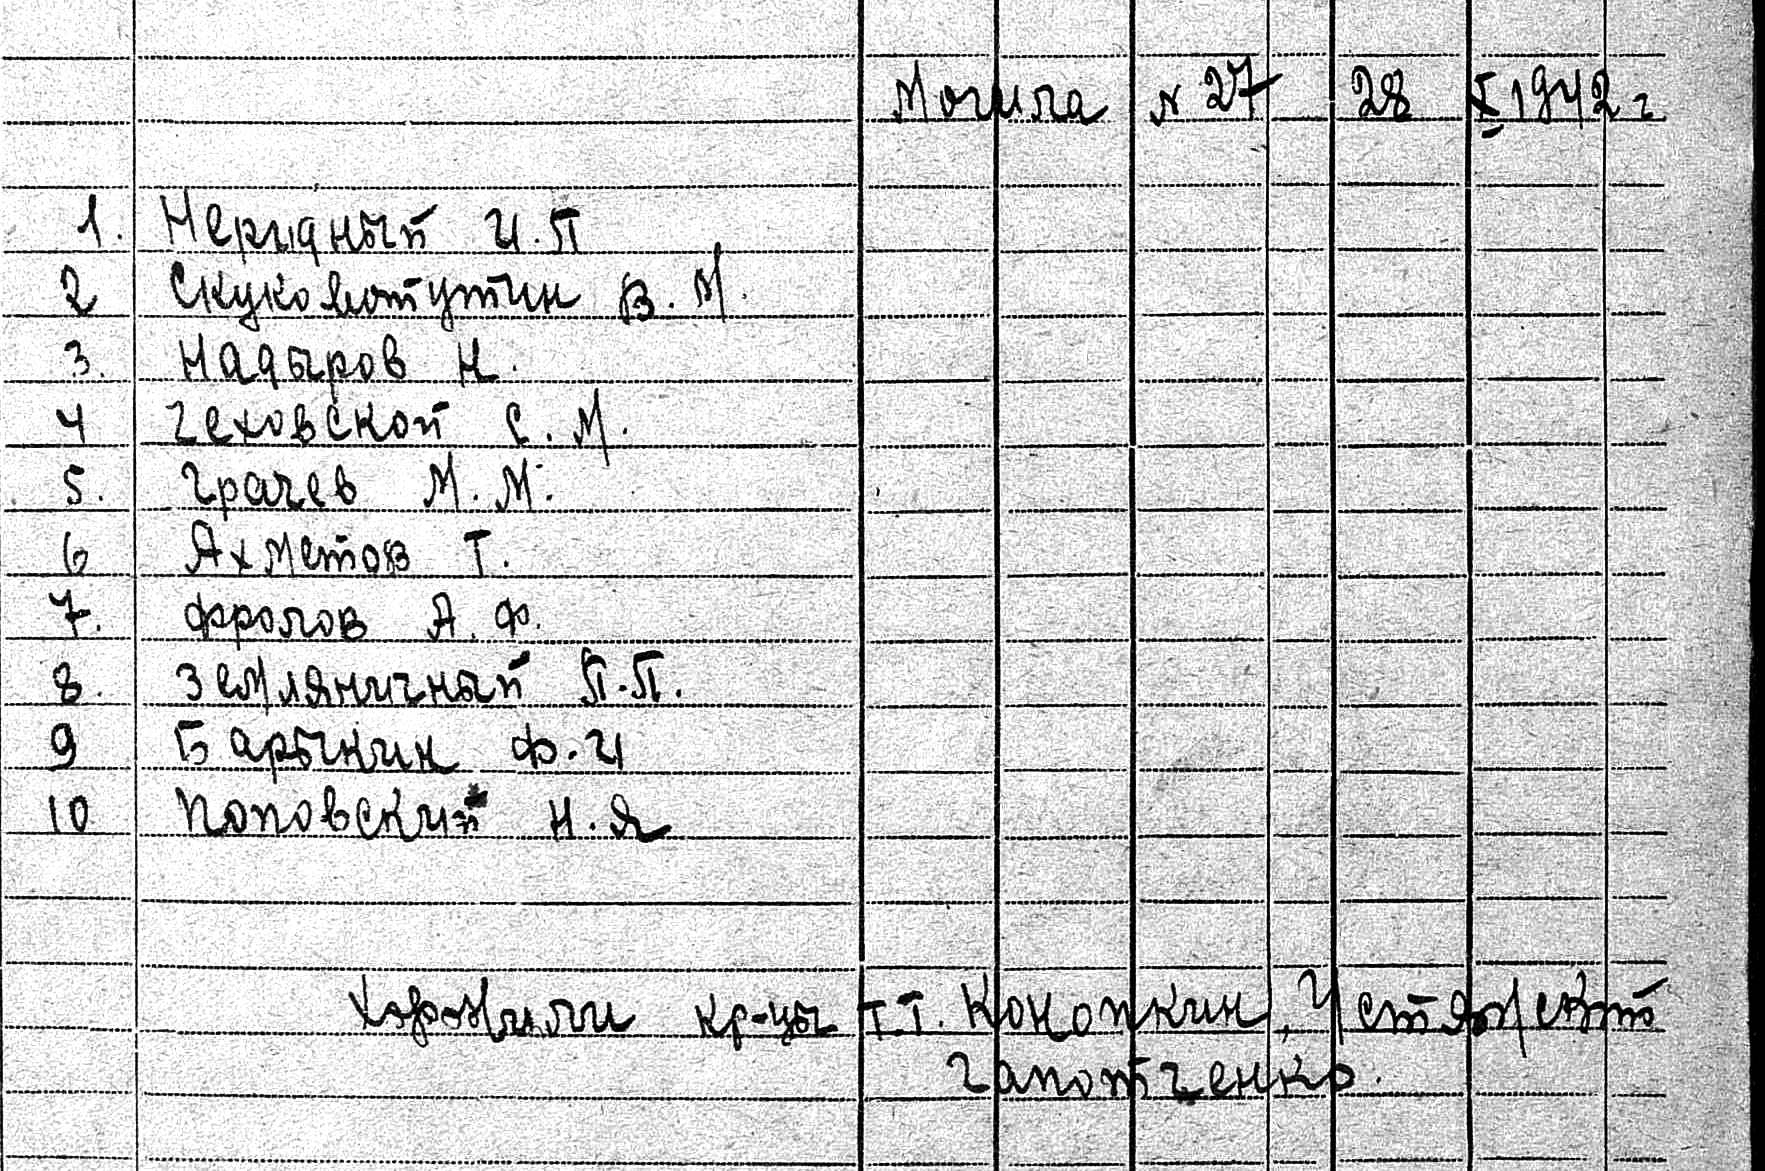 Могила N 27 28 X 1942 г
1. Нерядный И.П
2 Скукамотутин В. М.
3. Надыров Н.
4 Чеховской С. М.
5. Грачев М. М.
6 Ахметов Т.
7. Фролов А. Ф.
8. Земляничный П.П.
9 Барыкин Ф.И
10 Поповский Н.Я
Хоронили кр-цы т.т. Конопкин,
Гапотченко.